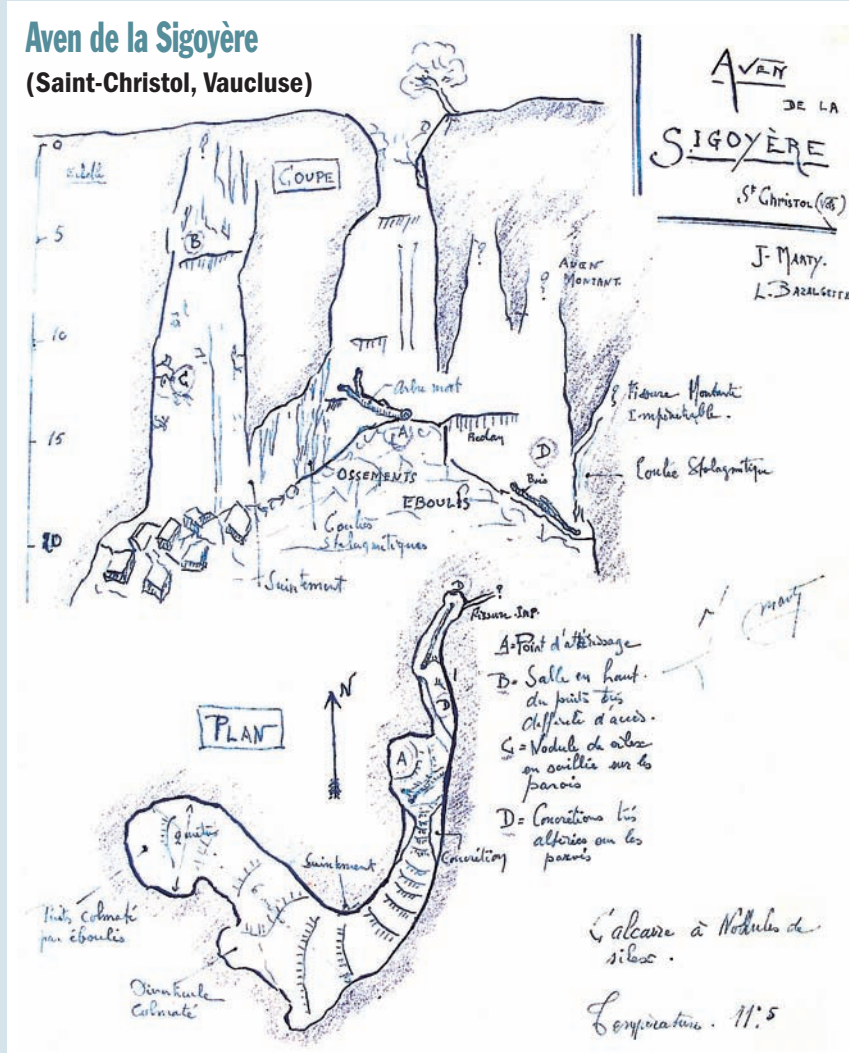 Aven de la Sigoyère
(Saint-Christol, Vaucluse)
AVEN
DE LA
SIGOYÈRE
St Christol (Vse)
J. MARTY.
L. BAZALGETTE
COUPE
0
5
10
15
20
?
B
C
AVEN
MONTANT.
?
?
Arbre mort
A
Redan
D
Buis
? Fissure Montante
Impénétrable.
Coulée Stalagmitique
OSSEMENTS
EBOULIS
Coulées
Stalagmitiques
Suintement
D
?
Fissure Imp.
Marty
PLAN
N
A
D
A = Point d'atterissage
B = Salle en haut
du puits très
difficile d'accès.
C = Nodule de silex
en saillie sur les
parois
D = Concrétions très
altérées sur les
parois
Suintement
Concrétion
Puits colmaté
par éboulis
Diverticule
Colmaté
Calcaire à Nodules de
silex.
Température. 11°5